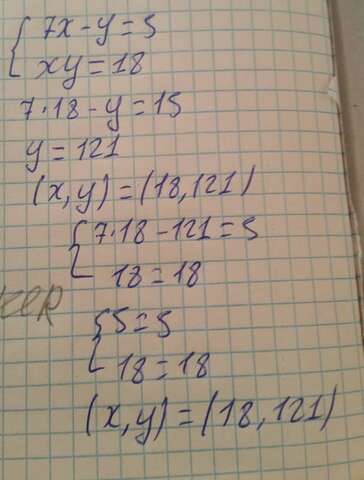 7x-y=5
xy=18
7·18-y=15
y=121
(x,y)=(18,121)
7·18-121=5
18=18
5=5
18=18
(x,y)=(18,121)